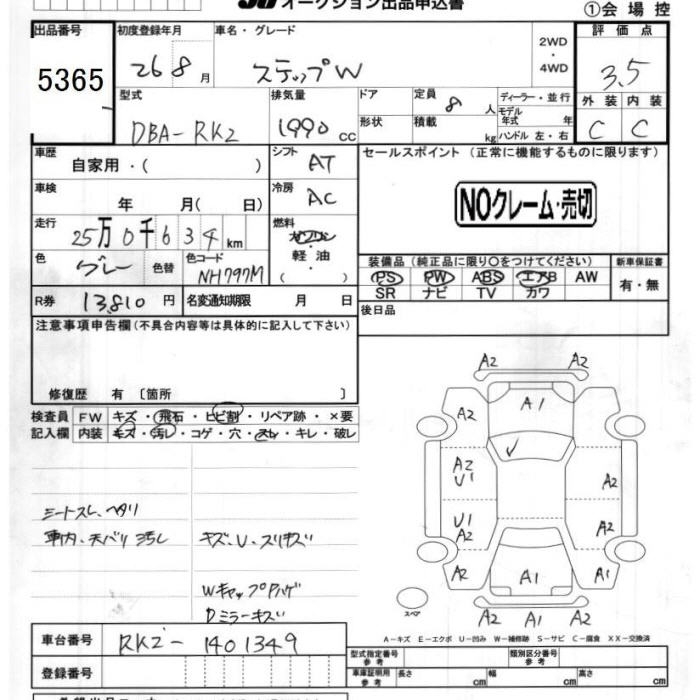 オークション出品申込書
①会場控
出品番号
5365
初度登録年月
26 8 月
車名・グレード
ステップW
2WD
・
4WD
評価点
3.5
外装 内装
C C
型式
DBA-RK2
排気量
1990 cc
ドア
形状
定員 8 人
積載 kg
ディーラー・並行
モデル年式 年
ハンドル 左・右
車歴
自家用・( )
シフト AT
セールスポイント (正常に機能するものに限ります)
NOクレーム・売切
車検
年 月( 日)
冷房 AC
走行
25万 0千 6 3 4 km
燃料
ガソリン
軽油
( )
色 グレー 色替
色コード NH797M
装備品 (純正品に限り○をつけてください)
PS PW ABS エアB AW
SR ナビ TV カワ
新車保証書
有・無
R券 13,810 円
名変通知期限 月 日
後日品
注意事項申告欄(不具合内容等は具体的に記入して下さい)
修復歴 有 〔箇所 〕
検査員
記入欄
FW キズ・飛石・ヒビ割・リペア跡・×要
内装 キズ・汚レ・コゲ・穴・スレ・キレ・破レ
シートスレ、ヘタリ
車内、天バリ汚レ
キズ、U、スリキズ
WキャップPハゲ
Dミラーキズ
A2 A2
A2 A1 A2
A2
U1
A2
U1
A2
A2
A2 A1 A2
A2 A1 A2
スペア
A-キズ E-エクボ U-凹み W-補修跡 S-サビ C-腐食 XX-交換済
車台番号 RK2-1401349
登録番号
型式指定番号
参考
類別区分番号
参考
車庫証明用
参考
長さ cm 幅 cm 高さ cm